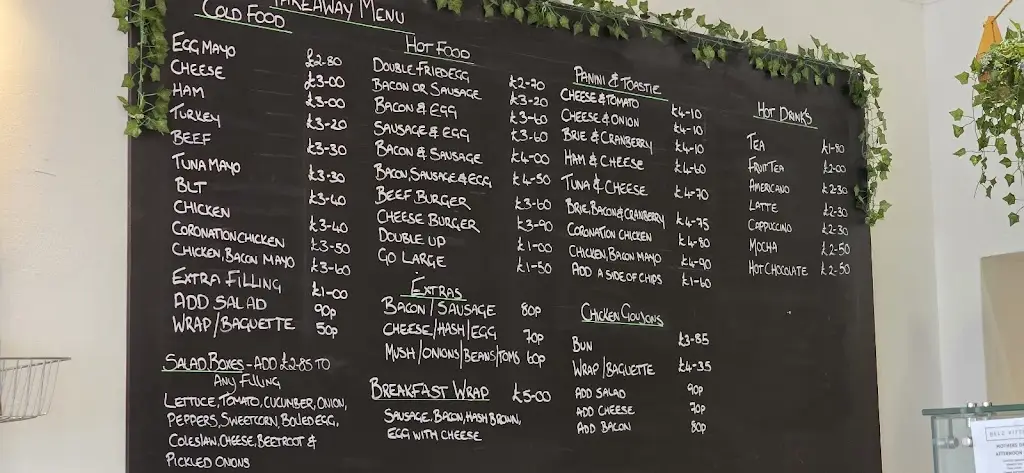 TAKEAWAY MENU
COLD FOOD
EGG MAYO £2-80
CHEESE £3-00
HAM £3-00
TURKEY £3-20
BEEF £3-30
TUNA MAYO £3-30
BLT £3-40
CHICKEN £3-40
CORONATION CHICKEN £3-50
CHICKEN, BACON MAYO £3-60
EXTRA FILLING £1-00
ADD SALAD 90p
WRAP/BAGUETTE 50p
SALAD BOXES - ADD £2-85 TO
ANY FILLING
LETTUCE, TOMATO, CUCUMBER, ONION,
PEPPERS, SWEETCORN, BOILED EGG,
COLESLAW, CHEESE, BEETROOT &
PICKLED ONIONS
HOT FOOD
DOUBLE FRIED EGG £2-70
BACON OR SAUSAGE £3-20
BACON & EGG £3-60
SAUSAGE & EGG £3-60
BACON & SAUSAGE £4-00
BACON, SAUSAGE & EGG £4-50
BEEF BURGER £3-60
CHEESE BURGER £3-90
DOUBLE UP £1-00
GO LARGE £1-50
EXTRAS
BACON/SAUSAGE 80p
CHEESE/HASH/EGG 70p
MUSH/ONIONS/BEANS/TOMS 60p
BREAKFAST WRAP £5-00
SAUSAGE, BACON, HASH BROWN,
EGG WITH CHEESE
PANINI & TOASTIE
CHEESE & TOMATO £4-10
CHEESE & ONION £4-10
BRIE & CRANBERRY £4-10
HAM & CHEESE £4-60
TUNA & CHEESE £4-70
BRIE, BACON & CRANBERRY £4-75
CORONATION CHICKEN £4-80
CHICKEN, BACON MAYO £4-90
ADD A SIDE OF CHIPS £1-60
CHICKEN GOUJONS
BUN £3-85
WRAP/BAGUETTE £4-35
ADD SALAD 90p
ADD CHEESE 70p
ADD BACON 80p
HOT DRINKS
TEA £1-80
FRUIT TEA £2-00
AMERICANO £2-30
LATTE £2-30
CAPPUCCINO £2-30
MOCHA £2-50
HOT CHOCOLATE £2-50
AFTERNOON